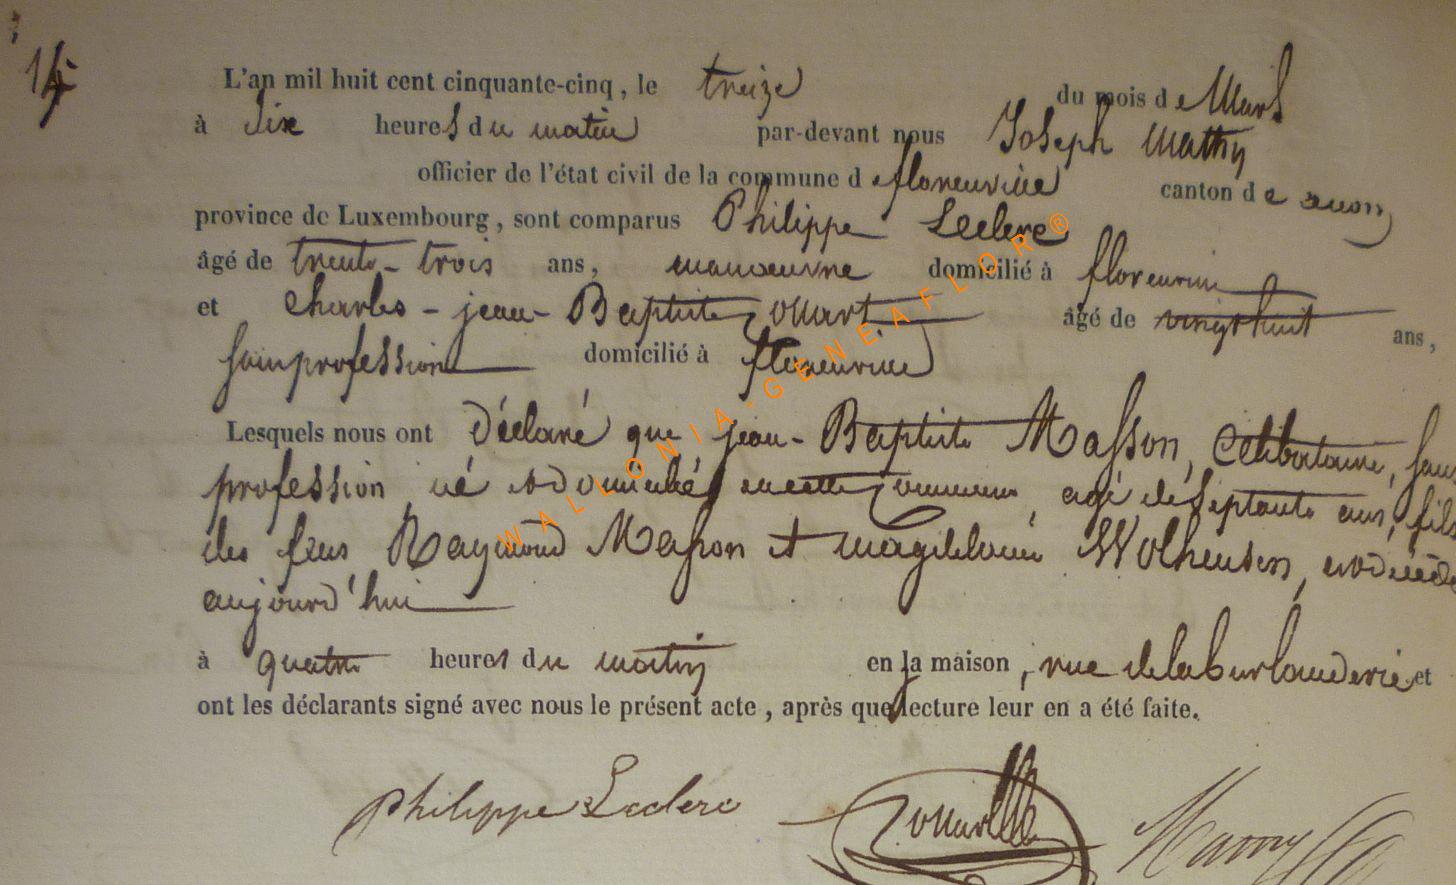 14
L'an mil huit cent cinquante-cinq, le treize du mois de Mars
à dix heures du matin par-devant nous Joseph Mathy
officier de l'état civil de la commune de florenville canton de
province de Luxembourg, sont comparus Philippe Leclerc
âgé de trente-trois ans, manoeuvre domicilié à florenville
et Charles-jean-Baptiste âgé de vingt huit ans,
sans profession domicilié à florenville
Lesquels nous ont Déclaré que jean-Baptiste Masson, Célibataire, sans
profession né et domicilié en cette commune, agé de septante ans, fils
des feus Raymond Masson et magdelaine Wolheusen, est décédé
aujourd'hui
à quatre heures du matin en sa maison, rue de la et
ont les déclarants signé avec nous le présent acte, après que lecture leur en a été faite.
philippe Leclerc
WALLONIA-GENEAFLOR®